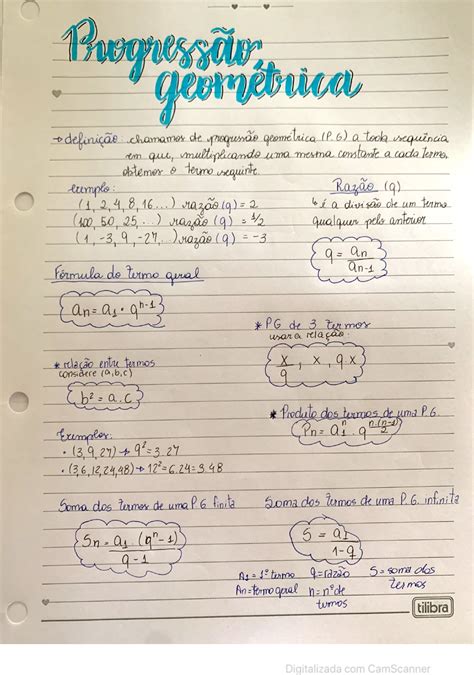 Progressão
geométrica
→ definição: chamamos de progressão geométrica (P.G) a toda sequência
em que, multiplicando uma mesma constante a cada termo,
obtemos o termo seguinte.
exemplo:
(1, 2, 4, 8, 16...) razão (q) = 2
(100, 50, 25, ...) razão (q) = 1/2
(1, -3, 9, -27, ...) razão (q) = -3
Razão (q)
↳ é a divisão de um termo
qualquer pelo anterior
q = an / an-1
Fórmula do termo geral
an = a1 · q^n-1
* PG de 3 termos
usar a relação
x/q , x , q.x
* relação entre termos
considere (a,b,c)
b² = a.c
* Produto dos termos de uma P.G.
Pn = a1^n . q^n.(n-1)/2
Exemplos:
• (3,9,27) → 9² = 3.27
• (3,6,12,24,48) → 12² = 6.24 = 3.48
Soma dos termos de uma P.G finita
Sn = a1 . (q^n - 1) / q - 1
Soma dos termos de uma P.G. infinita
S = a1 / 1-q
A1 = 1º termo q = razão S = soma dos
An = termo geral n = nº de termos
termos
tilibra
Digitalizada com CamScanner